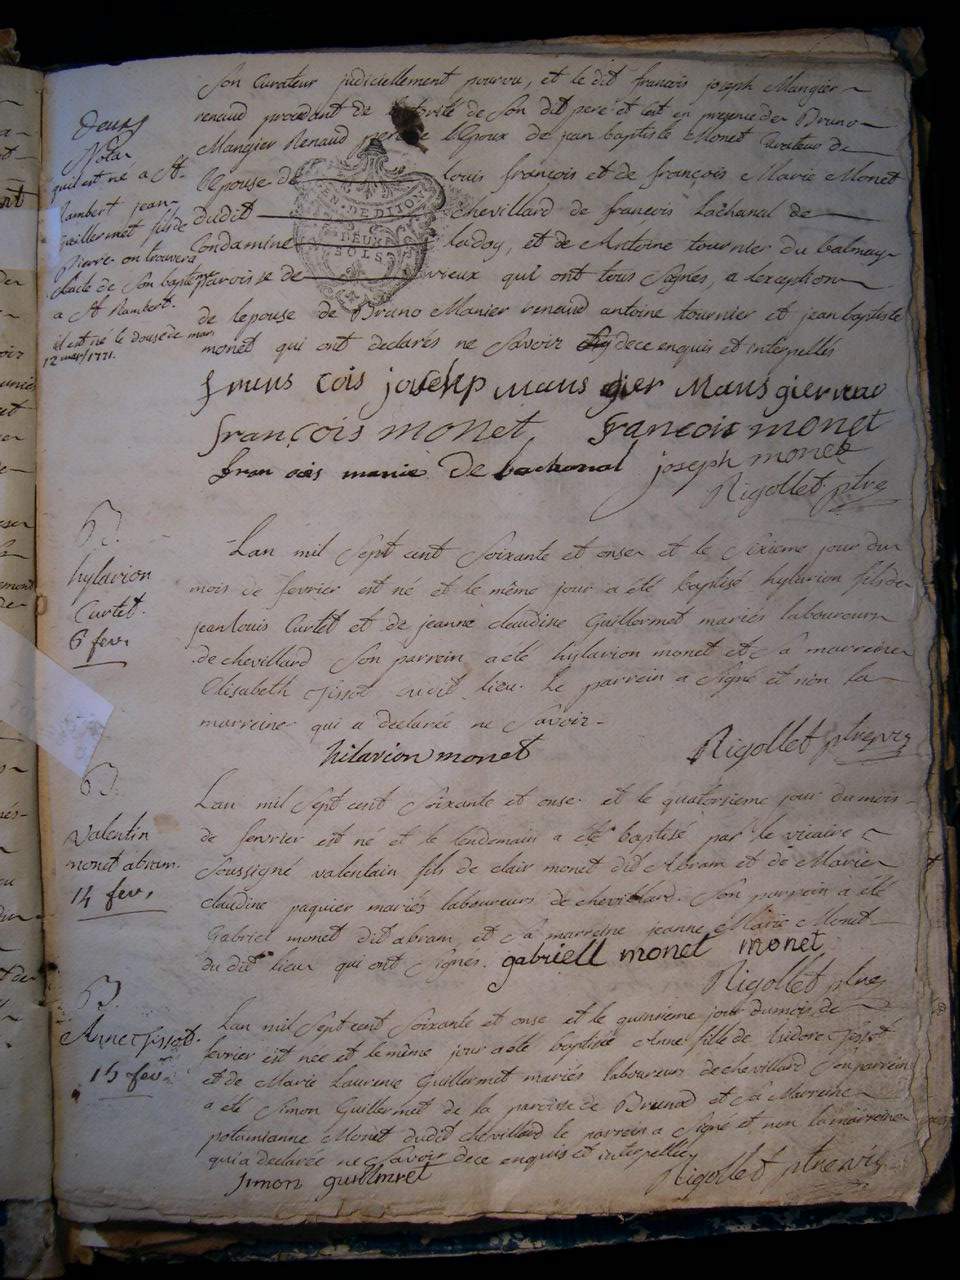 son curateur judiciellement pourvu, et le dit francois joseph Mangier
renaud procedant de de son dit pere et cest en presence de Bruno
Mangier Renaud lepoux de jean baptiste Monet curateur de
lepouse de louis françois et de françois Marie Monet
dudit chevillard de francois Lachanal de
Condamine ladoy, et de Antoine tournier du balmay
paroisse de vieux qui ont tous signés, a lexception
de lepouse de Bruno Manier renaud antoine tournier et jean baptiste
monet qui ont declarés ne savoir dece enquis et interpellés
GEN. DE DIJON
DEUX
SOLS
Nota
qu'il est né a St
Rambert jean
guillermet fils de
Pierre on trouvera
lacte de son bapteme
a St Rambert.
il est né le douse de mars
12 mars 1771.
joseph maus gier Maus gier
françois monet françois monet
de lachanal joseph monet
Rigollet ptre
B.
hylarion
Curtet.
6 fev.
Lan mil sept cent soixante et onse et le sixieme jour du
mois de fevrier est né et le même jour a été baptisé hylarion fils de
jean louis Curtet et de jeanne claudine Guillermet mariés laboureurs
de chevillard son parrein a été hylarion monet et sa marreine
Elisabeth Tissot dudit lieu. Le parrein a signé et non la
marreine qui a declarée ne savoir
hilarion monet Rigollet ptre vic
B.
Valentin
monet abram.
14 fev.
Lan mil sept cent soixante et onse et le quatorsieme jour du mois
de fevrier est né et le lendemain a été baptisé par le vicaire
soussigné valentain fils de clair monet dit Abram et de Marie
claudine paquier mariés laboureurs de chevillard. Son parrein a été
Gabriel monet dit abram, et sa marreine jeanne Marie Monet
du dit lieu qui ont signés. gabriell monet monet
Rigollet ptre
B.
Anne Tissot.
15 fev.
Lan mil sept cent soixante et onse et le quinsieme jour du mois de
fevrier est née et le même jour a été baptisée Anne fille de Isidore Tissot
et de Marie Laurence Guillermet mariés laboureurs de chevillard son parrein
a été Simon Guillermet de la paroisse de Brenod et sa Marreine
potamianne Monet dudit chevillard le parrein a signé et non la marreine
qui a declarée ne savoir dece enquis et interpellée
simon guillmret Rigollet ptre vic